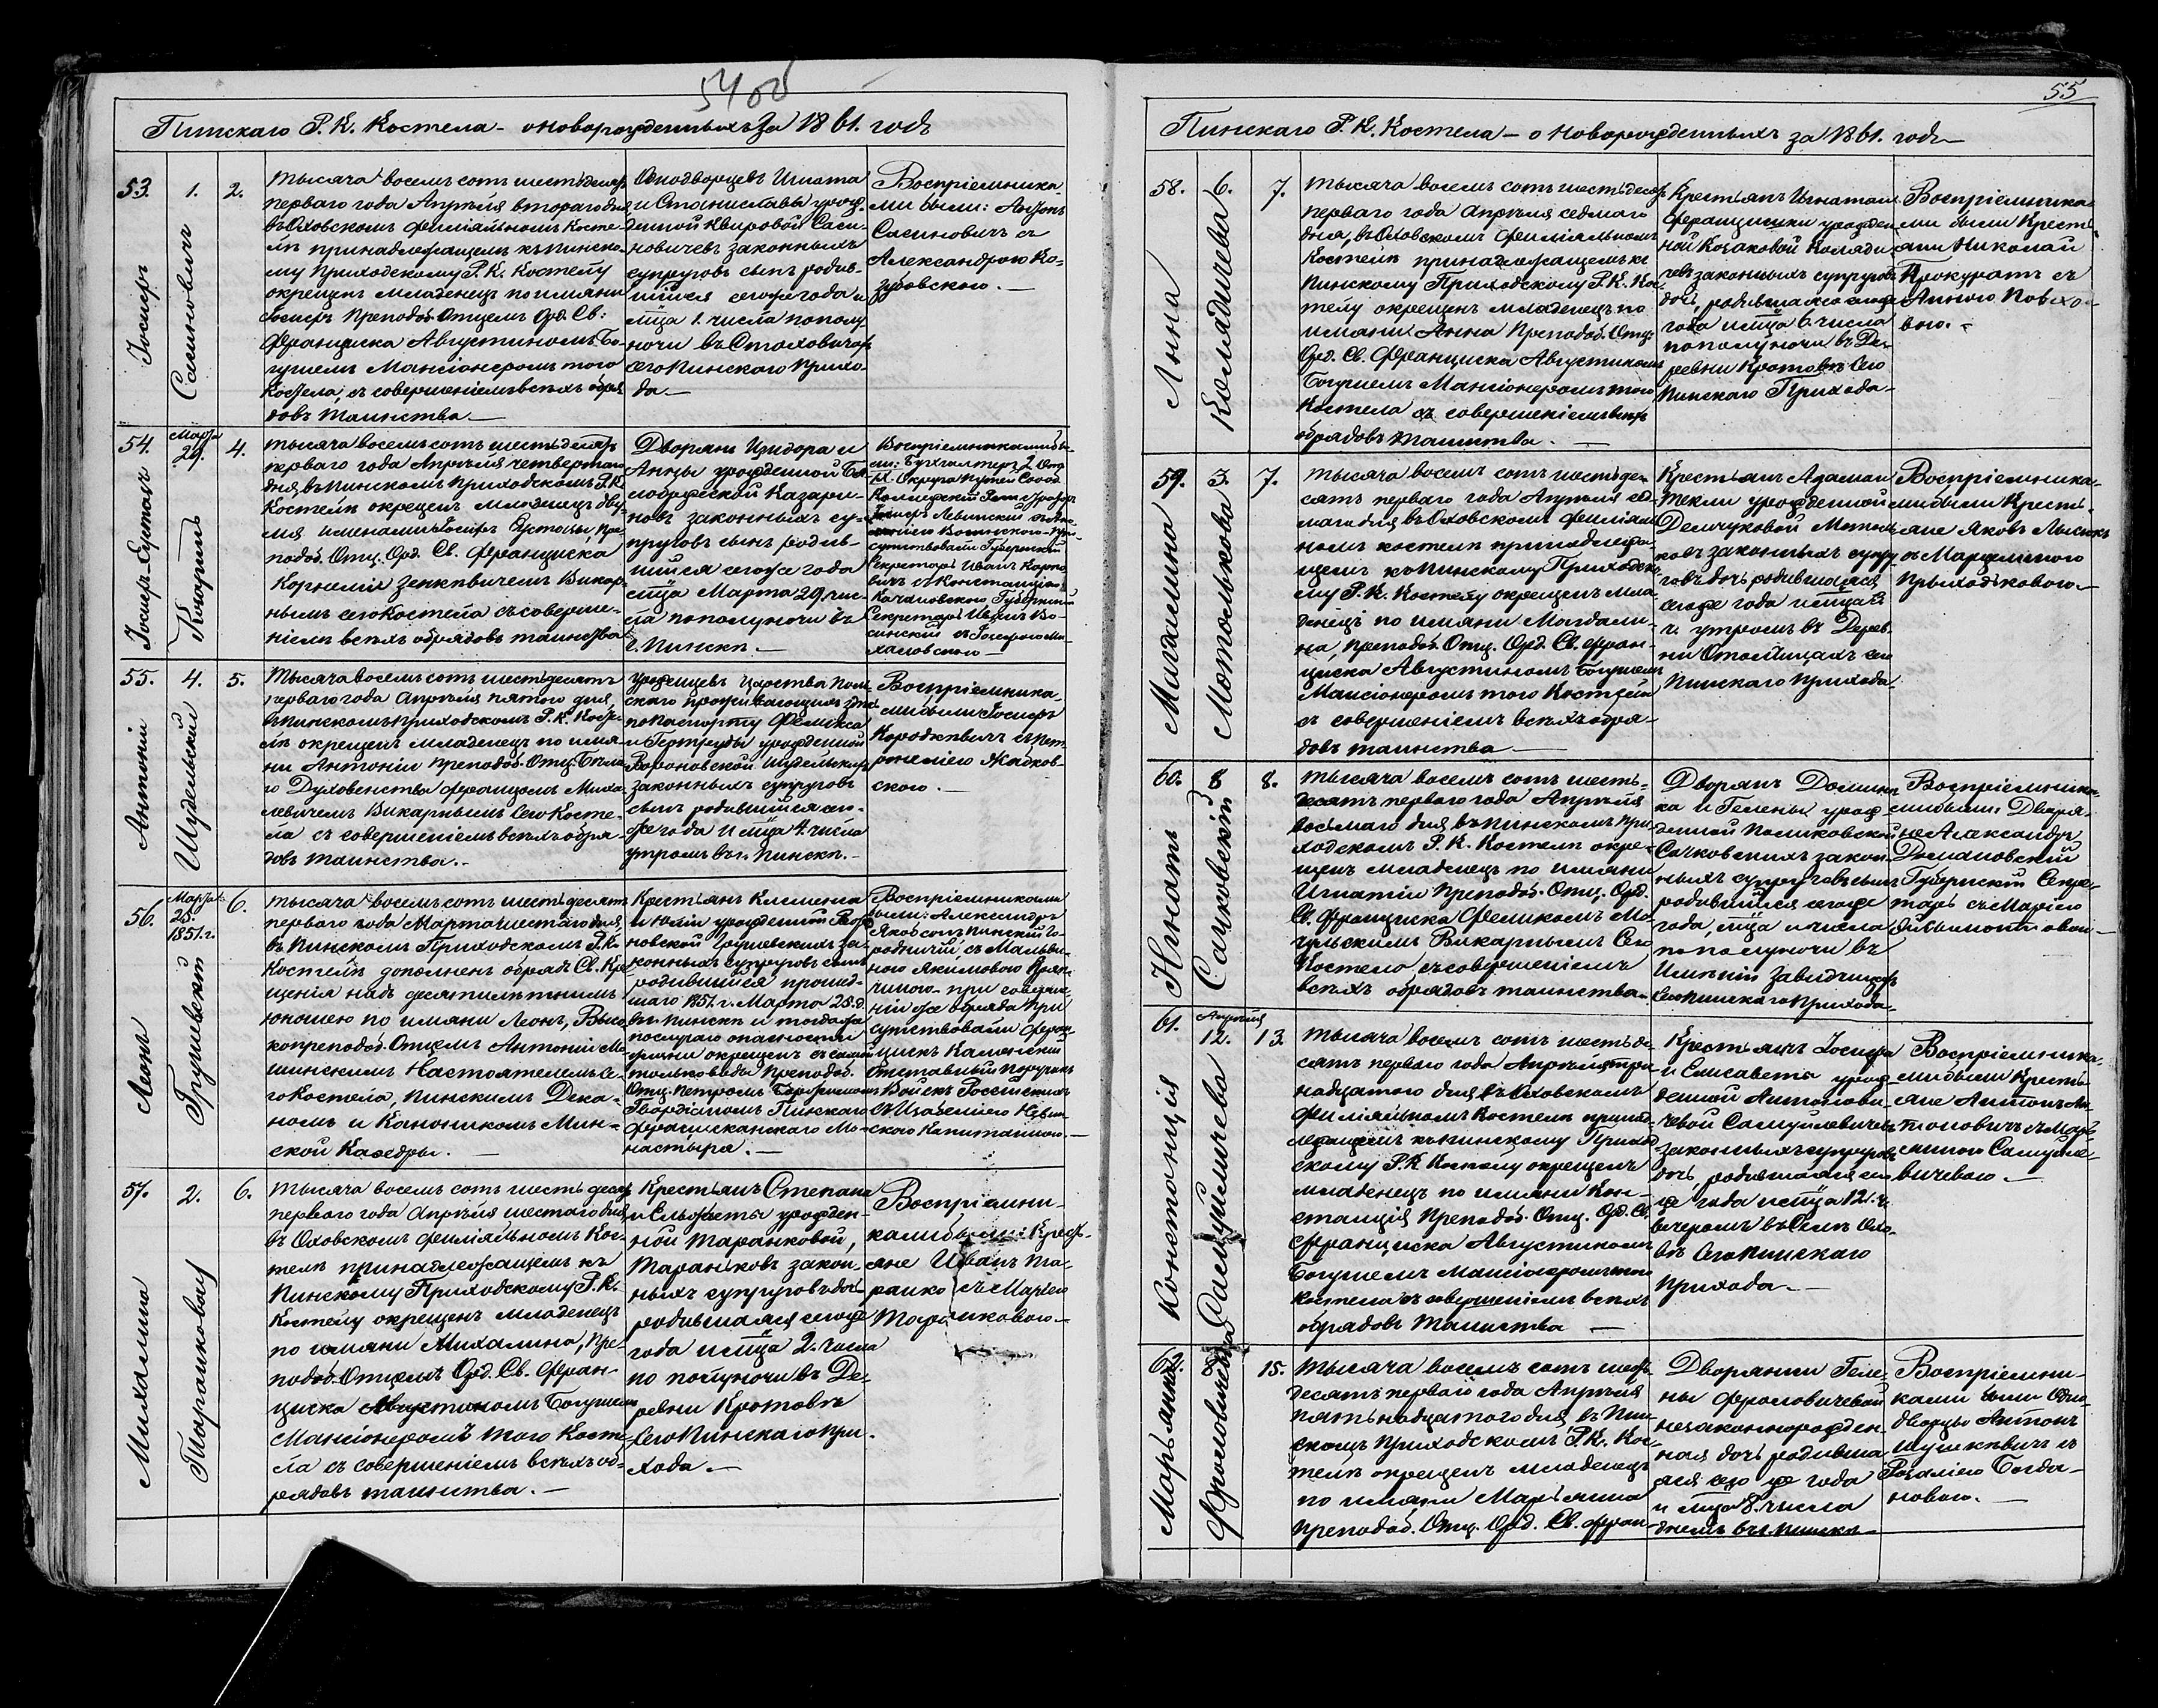 54 об
Пинскаго Р. К. Костела – о новорожденныхъ за 1861. годъ
53.
1.
2.
Іосифъ
Сасиновичъ
Тысяча восемь сотъ шестьдесятъ
перваго года Апрѣля втораго дня,
въ Оховскомъ филіяльномъ Косте-
лѣ принадлежащемъ къ Пинско-
му Приходскому Р. К. Костелу
окрещенъ младенецъ по имяни
Іосифъ Преподоб. Отцемъ Орд. Св:
Франциска Августиномъ Бо-
гушемъ Мансіонеромъ того
Костела, съ совершеніемъ всѣхъ обря
довъ таинства.—
Однодворцевъ Игната
и Станиславы урож-
денной Саси-
новичевъ законныхъ
супруговъ сынъ родив-
шійся сегоже года и
мѣца 1. числа по полу-
ночи въ Стаховичахъ
сего Пинскаго Прихо-
да.—
Воспріемника-
ми были: Антонъ
Сасиновичъ съ
Александрою Ко-
зубовскою.—
54.
Марта
29.
4.
Іосифъ Евстахъ
Тысяча восемь сотъ шестьдесятъ
перваго года Апрѣля четвертаго
дня, въ Пинскомъ Приходскомъ Р. К.
Костелѣ окрещенъ младенецъ дву-
мя именами Іосифъ Евстахъ, Пре-
подоб. Отц. Орд. Св. Франциска
Корнеліемъ Зенкевичемъ Викар-
нымъ сего Костела съ соверше-
ніемъ всѣхъ обрядовъ таинства
Дворянъ Изидора и
Анны урожденной Бя-
лобржеской Казари-
новъ законныхъ су-
пруговъ сынъ родив-
шійся сегоже года
мѣца Марта 29. чис-
ла по полуночи въ
г. Пинскѣ.—
Воспріемниками бы-
ли: Бухгалтеръ 2 Отд
Округа Путей Сооб.
Левинскій
Губернскій
Секретарь Иванъ
Губернскій
Секретарь
55.
4.
5.
Антоній
Шидельскій
Тысяча восемь сотъ шестьдесятъ
перваго года Апрѣля пятого дня,
въ Пинскомъ Приходскомъ Р. К. Косте
лѣ окрещенъ младенецъ по имя-
ни Антоній Преподоб. Отц. Бѣла
го Духовенства Францомъ Миха
левичемъ Викарнымъ сего Косте-
ла съ совершеніемъ всѣхъ обря-
довъ таинства.—
Урожденцевъ Царства Поль
скаго проживающихъ
по паспорту Феликса
и Гертруды урожденной
Бороновской Шидельскихъ
законныхъ супруговъ
сынъ родившійся се-
гоже года и мѣца 4. числа
утромъ въ г. Пинскѣ.—
Воспріемника-
ми были Іосифъ
Короткевичъ съ Пет-
ронелею Жадков-
скою.—
56.
Марта
28.
1851. г.
6.
Леонъ
Грушевскій
Тысяча восемь сотъ шестьдесятъ
перваго года Марта шестаго дня,
въ Пинскомъ Приходскомъ Р. К.
Костелѣ дополненъ обрядъ Св. Кре
щенія надъ десятилѣтнимъ
юношею по имяни Леонъ, Высо
копреподоб. Отцемъ Антоніемъ Мо-
шинскимъ Настоятелемъ се-
го Костела, Пинскимъ Дека-
номъ и Каноникомъ Мин-
ской Кафедры.—
Крестьянъ Климента
и Юліи урожденной
новской Грушевскихъ за-
конныхъ супруговъ сынъ
родившійся прошед-
шаго 1851. г. Марта 28. д.
въ Пинскѣ и тогдаже
по случаю опасности
жизни окрещенъ съ самой
только воды Преподоб.
Отц. Петромъ
Гвардіаномъ Пинскаго
Францисканскаго Мо-
настыря.—
Воспріемниками
были: Александръ
Якобсонъ Пинскій Го-
родничій, съ Мальви-
ною Якимовою
при соверше-
ніи же обряда при
сутствовали Фран-
цискъ Каменскій
Отставный Поручикъ
Войскъ Россійскихъ
съ Изабеллею
Капитаншою.—
57.
2.
6.
Михалина
Таранковна
Тысяча восемь сотъ шестьдесятъ
перваго года Апрѣля шестаго дня,
въ Оховскомъ филіяльномъ Кос-
телѣ принадлежащемъ къ
Пинскому Приходскому Р. К.
Костелу окрещенъ младенецъ
по имяни Михалина, Пре-
подоб. Отцемъ Орд. Св. Фран-
циска Августиномъ Богушемъ
Мансіонеромъ того Косте-
ла съ совершеніемъ всѣхъ об-
рядовъ таинства.—
Крестьянъ Степана
и Ельжбеты урожден-
ной Таранковой,
Таранковъ закон-
ныхъ супруговъ дочь
родившаяся сегоже
года и мѣца 2. числа
по полуночи въ Де-
ревни Кротовѣ
сего Пинскаго При-
хода.—
Воспріемни-
ками были: Кресть-
яне Иванъ Та-
ранко съ Маріею
Таранковою.—
55
Пинскаго Р. К. Костела – о новорожденныхъ за 1861. годъ
58.
6.
7.
Анна
Колядичева
Тысяча восемь сотъ шестьдесятъ
перваго года Апрѣля седмаго
дня, въ Оховскомъ филіяльномъ
Костелѣ принадлежащемъ къ
Пинскому Приходскому Р. К. Кос
телу окрещенъ младенецъ по
имяни Анна Преподоб. Отц.
Орд. Св. Франциска Августиномъ
Богушемъ Мансіонеромъ того
Костела съ совершеніемъ всѣхъ
обрядовъ таинства.—
Крестьянъ Игната и
Францишки урожден
ной Козаковой Коляди-
чевъ законныхъ супруговъ
дочь, родившаяся сегоже
года и мѣца 6. числа
по полуночи въ Де-
ревни Кротовѣ сего
Пинскаго Прихода.—
Воспріемника-
ми были Кресть-
яне Николай
Прокуратъ съ
Анною
59.
3.
7.
Магдалина
Мотолькова
Тысяча восемь сотъ шестьде-
сятъ перваго года Апрѣля сед-
маго дня въ Оховскомъ филіяль
номъ костелѣ принадлежа-
щемъ къ Пинскому Приходско-
му Р. К. Костелу окрещенъ мла
денецъ по имяни Магдали-
на, Преподоб. Отц. Орд. Св. Фран-
циска Августиномъ Богушемъ
Мансіонеромъ того Костела
съ совершеніемъ всѣхъ обря-
довъ таинства.—
Крестьянъ Адама и
Текли урожденной
Демчуковой Мотоль
ковъ законныхъ супру
говъ дочь родившаяся
сегоже года и мѣца 3.
ч. утромъ въ Дерев-
ни сего
Пинскаго Прихода.
Воспріемника-
ми были Кресть-
яне Яковъ
съ Марцелиною
Прыходьковою.—
60.
8
8.
Игнатъ
Сачковскій
Тысяча восемь сотъ шесть-
десятъ перваго года Апрѣля
восьмаго дня въ Пинскомъ При
ходскомъ Р. К. Костелѣ окре-
щенъ младенецъ по имяни
Игнатій Преподоб. Отц. Орд.
Св. Франциска Феликсомъ Мо-
гульскимъ Викарнымъ Сего
Костела, съ совершеніемъ
всѣхъ обрядовъ таинства.
Дворянъ Домини
ка и Гелены урож-
денной Поликовской
Сачковскихъ закон-
ныхъ супруговъ сынъ
родившійся сегоже
года, мѣца и числа
по полуночи въ
Имѣніи Завидчицахъ
сего Пинскаго Прихода.
Воспріемника-
ми были: Дворя-
не Александръ
Домановскій
Губернскій Секре-
тарь съ Маріею
61.
Апрѣля
12.
13.
Констанція
Самуйличева
Тысяча восемь сотъ шестьде-
сятъ перваго года Апрѣля три-
надцатаго дня въ Оховскомъ
филіяльномъ Костелѣ принад-
лежащемъ къ Пинскому Приход
скому Р. К. Костелу окрещенъ
младенецъ по имяни Кон-
станція Преподоб. Отц. Орд. Св.
Франциска Августиномъ
Богушемъ Мансіонеромъ того
Костела съ совершеніемъ всѣхъ
обрядовъ таинства —
Крестьянъ Іосифа
и Елисаветы урож-
денной Антонови-
чевой Самуйлевичевъ
законныхъ супруговъ
дочь, родившаяся сего
же года и мѣца 12. ч.
вечеромъ въ Селѣ Охо-
вѣ сего Пинскаго
Прихода.—
Воспріемника-
ми были Кресть-
яне Антонъ Ан-
тоновичъ съ
Самуйле-
вичевою.—
62.
8
15.
Марьянна
Фроловичева
Тысяча восемь сотъ шесть-
десятъ перваго года Апрѣля
пятьнадцатого дня въ Пин
скомъ Приходскомъ Р. К. Кос-
телѣ окрещенъ младенецъ
по имяни Марьянна
Преподоб. Отц. Орд. Св. Фран-
Дворянки Геле-
ны Фроловичевой
незаконнорожден-
ная дочь родивша
яся сего же года
и мѣца 8. числа
днемъ въ г. Пинскѣ
Воспріемни-
ками были Одно-
дворцы Антонъ
съ
Розаліею Богда-
новою.—